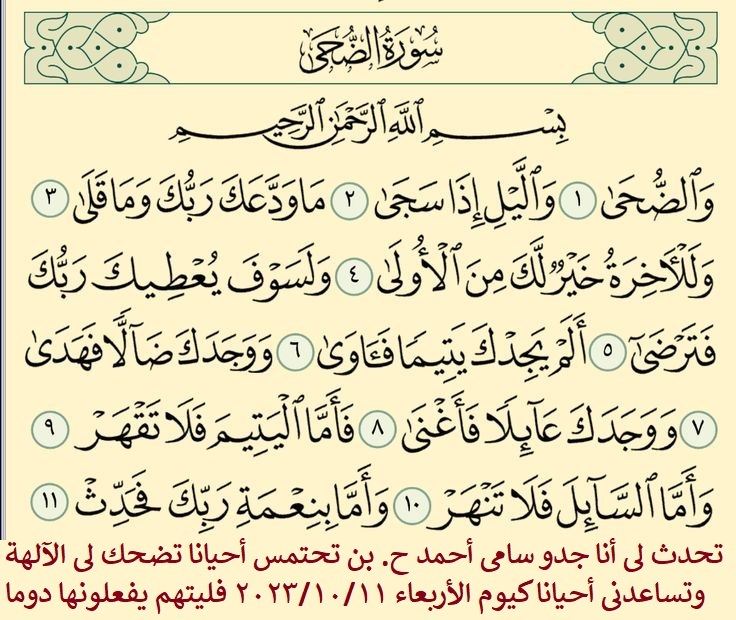 سُورَةُ الضُّحَى
بِسْمِ ٱللَّهِ ٱلرَّحْمَٰنِ ٱلرَّحِيمِ
وَٱلضُّحَىٰ ١ وَٱلَّيْلِ إِذَا سَجَىٰ ٢ مَا وَدَّعَكَ رَبُّكَ وَمَا قَلَىٰ ٣
وَلَلْءَاخِرَةُ خَيْرٌ لَّكَ مِنَ ٱلْأُولَىٰ ٤ وَلَسَوْفَ يُعْطِيكَ رَبُّكَ
فَتَرْضَىٰٓ ٥ أَلَمْ يَجِدْكَ يَتِيمًا فَـَٔاوَىٰ ٦ وَوَجَدَكَ ضَآلًّا فَهَدَىٰ
٧ وَوَجَدَكَ عَآئِلًا فَأَغْنَىٰ ٨ فَأَمَّا ٱلْيَتِيمَ فَلَا تَقْهَرْ ٩
وَأَمَّا ٱلسَّآئِلَ فَلَا تَنْهَرْ ١٠ وَأَمَّا بِنِعْمَةِ رَبِّكَ فَحَدِّثْ ١١
تحدث لى أنا جدو سامى أحمد ح. بن تحتمس أحيانا تضحك لى الآلهة
وتساعدنى أحيانا كيوم الأربعاء ٢٠٢٣/١٠/١١ فليتهم يفعلونها دوما